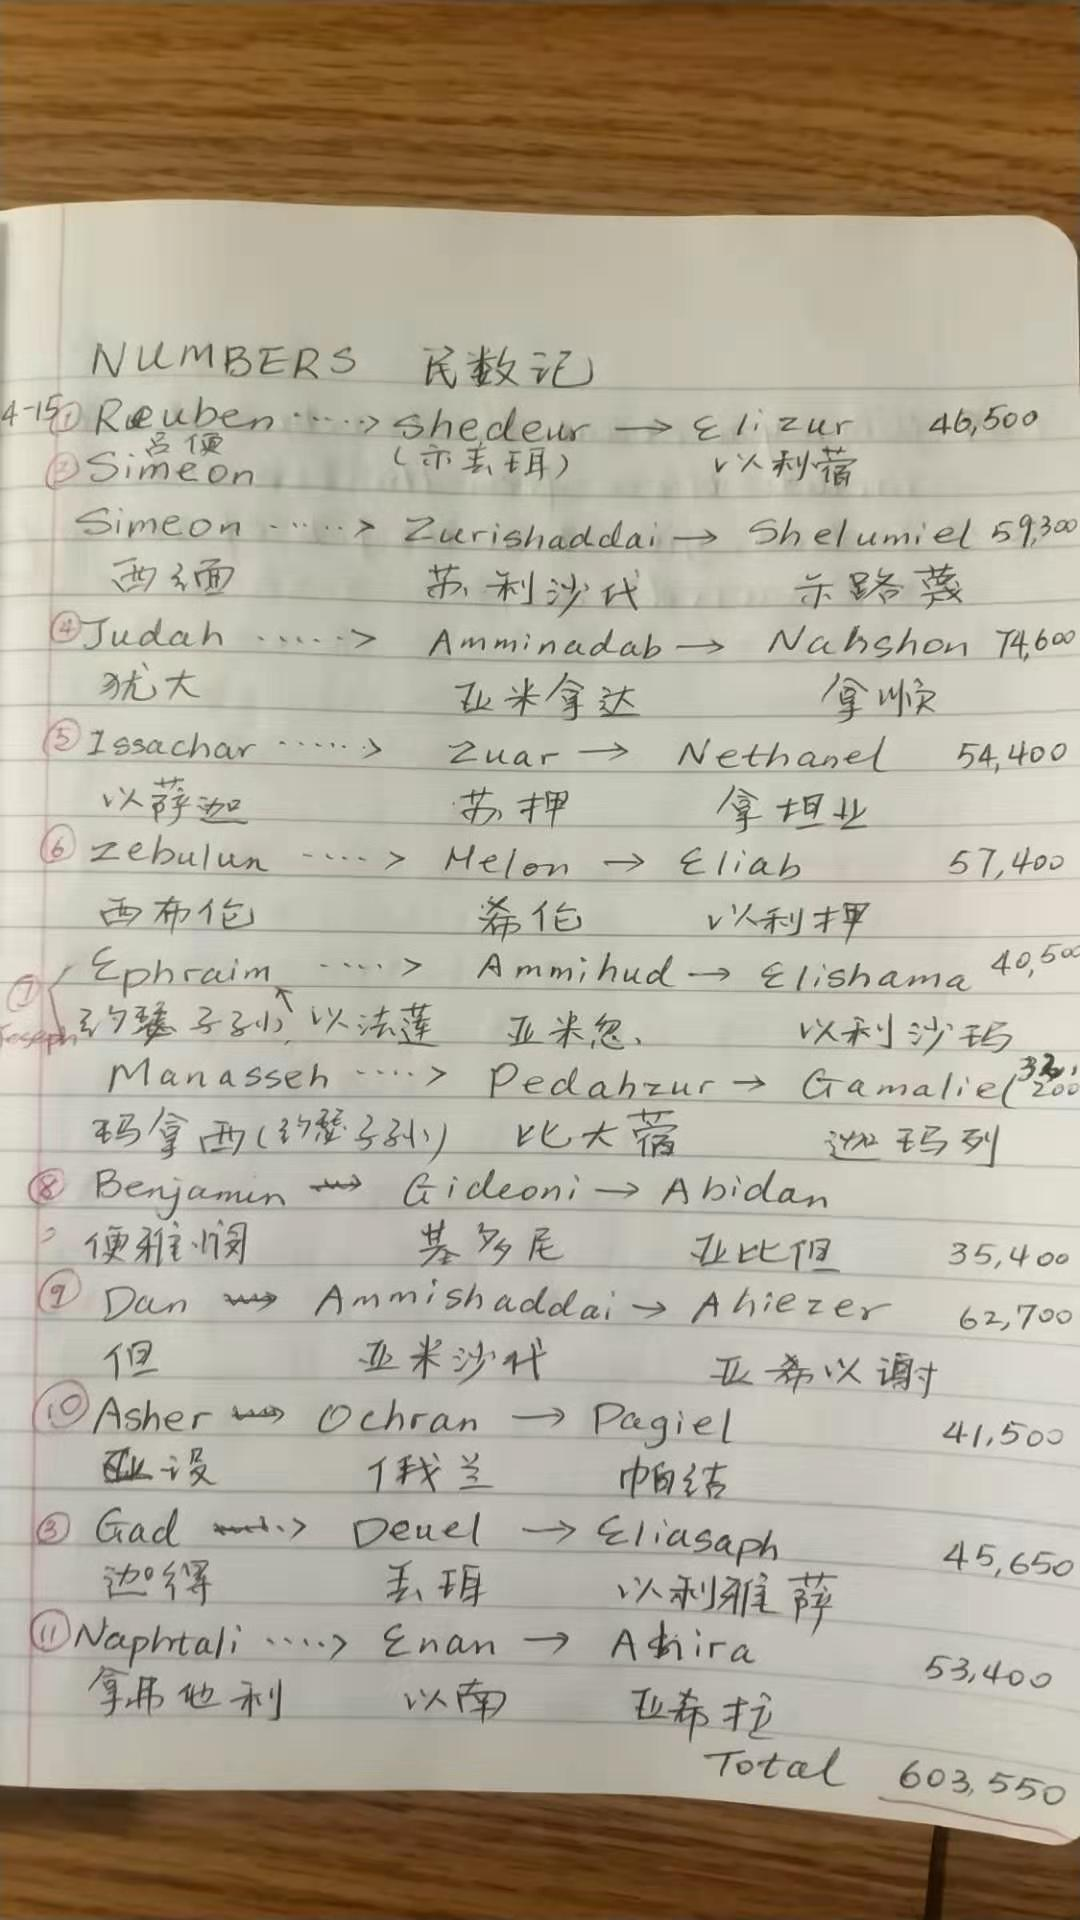 NUMBERS 民数记
4-15 ① Reuben ····> Shedeur → Elizur 46,500
吕便 (示丢珥) 以利蓿
② Simeon
Simeon ·····> Zurishaddai → Shelumiel 59,300
西缅 苏利沙代 示路蔑
④ Judah ·····> Amminadab → Nahshon 74,600
犹大 亚米拿达 拿顺
⑤ Issachar ······> Zuar → Nethanel 54,400
以萨迦 苏押 拿坦业
⑥ Zebulun ····> Helon → Eliab 57,400
西布伦 希伦 以利押
⑦ Ephraim ····> Ammihud → Elishama 40,500
Joseph 约瑟子孙, 以法莲 亚米忽、 以利沙玛
Manasseh ····> Pedahzur → Gamaliel 32,200
玛拿西(约瑟子孙) 比大蓿 迦玛列
⑧ Benjamin ···> Gideoni → Abidan
便雅悯 基多尼 亚比但 35,400
⑨ Dan ···> Ammishaddai → Ahiezer 62,700
但 亚米沙代 亚希以谢
⑩ Asher ···> Ochran → Pagiel 41,500
亚设 俄兰 帕结
③ Gad ····> Deuel → Eliasaph 45,650
迦得 丢珥 以利雅萨
⑪ Naphtali ····> Enan → Ahira 53,400
拿弗他利 以南 亚希拉
Total 603,550